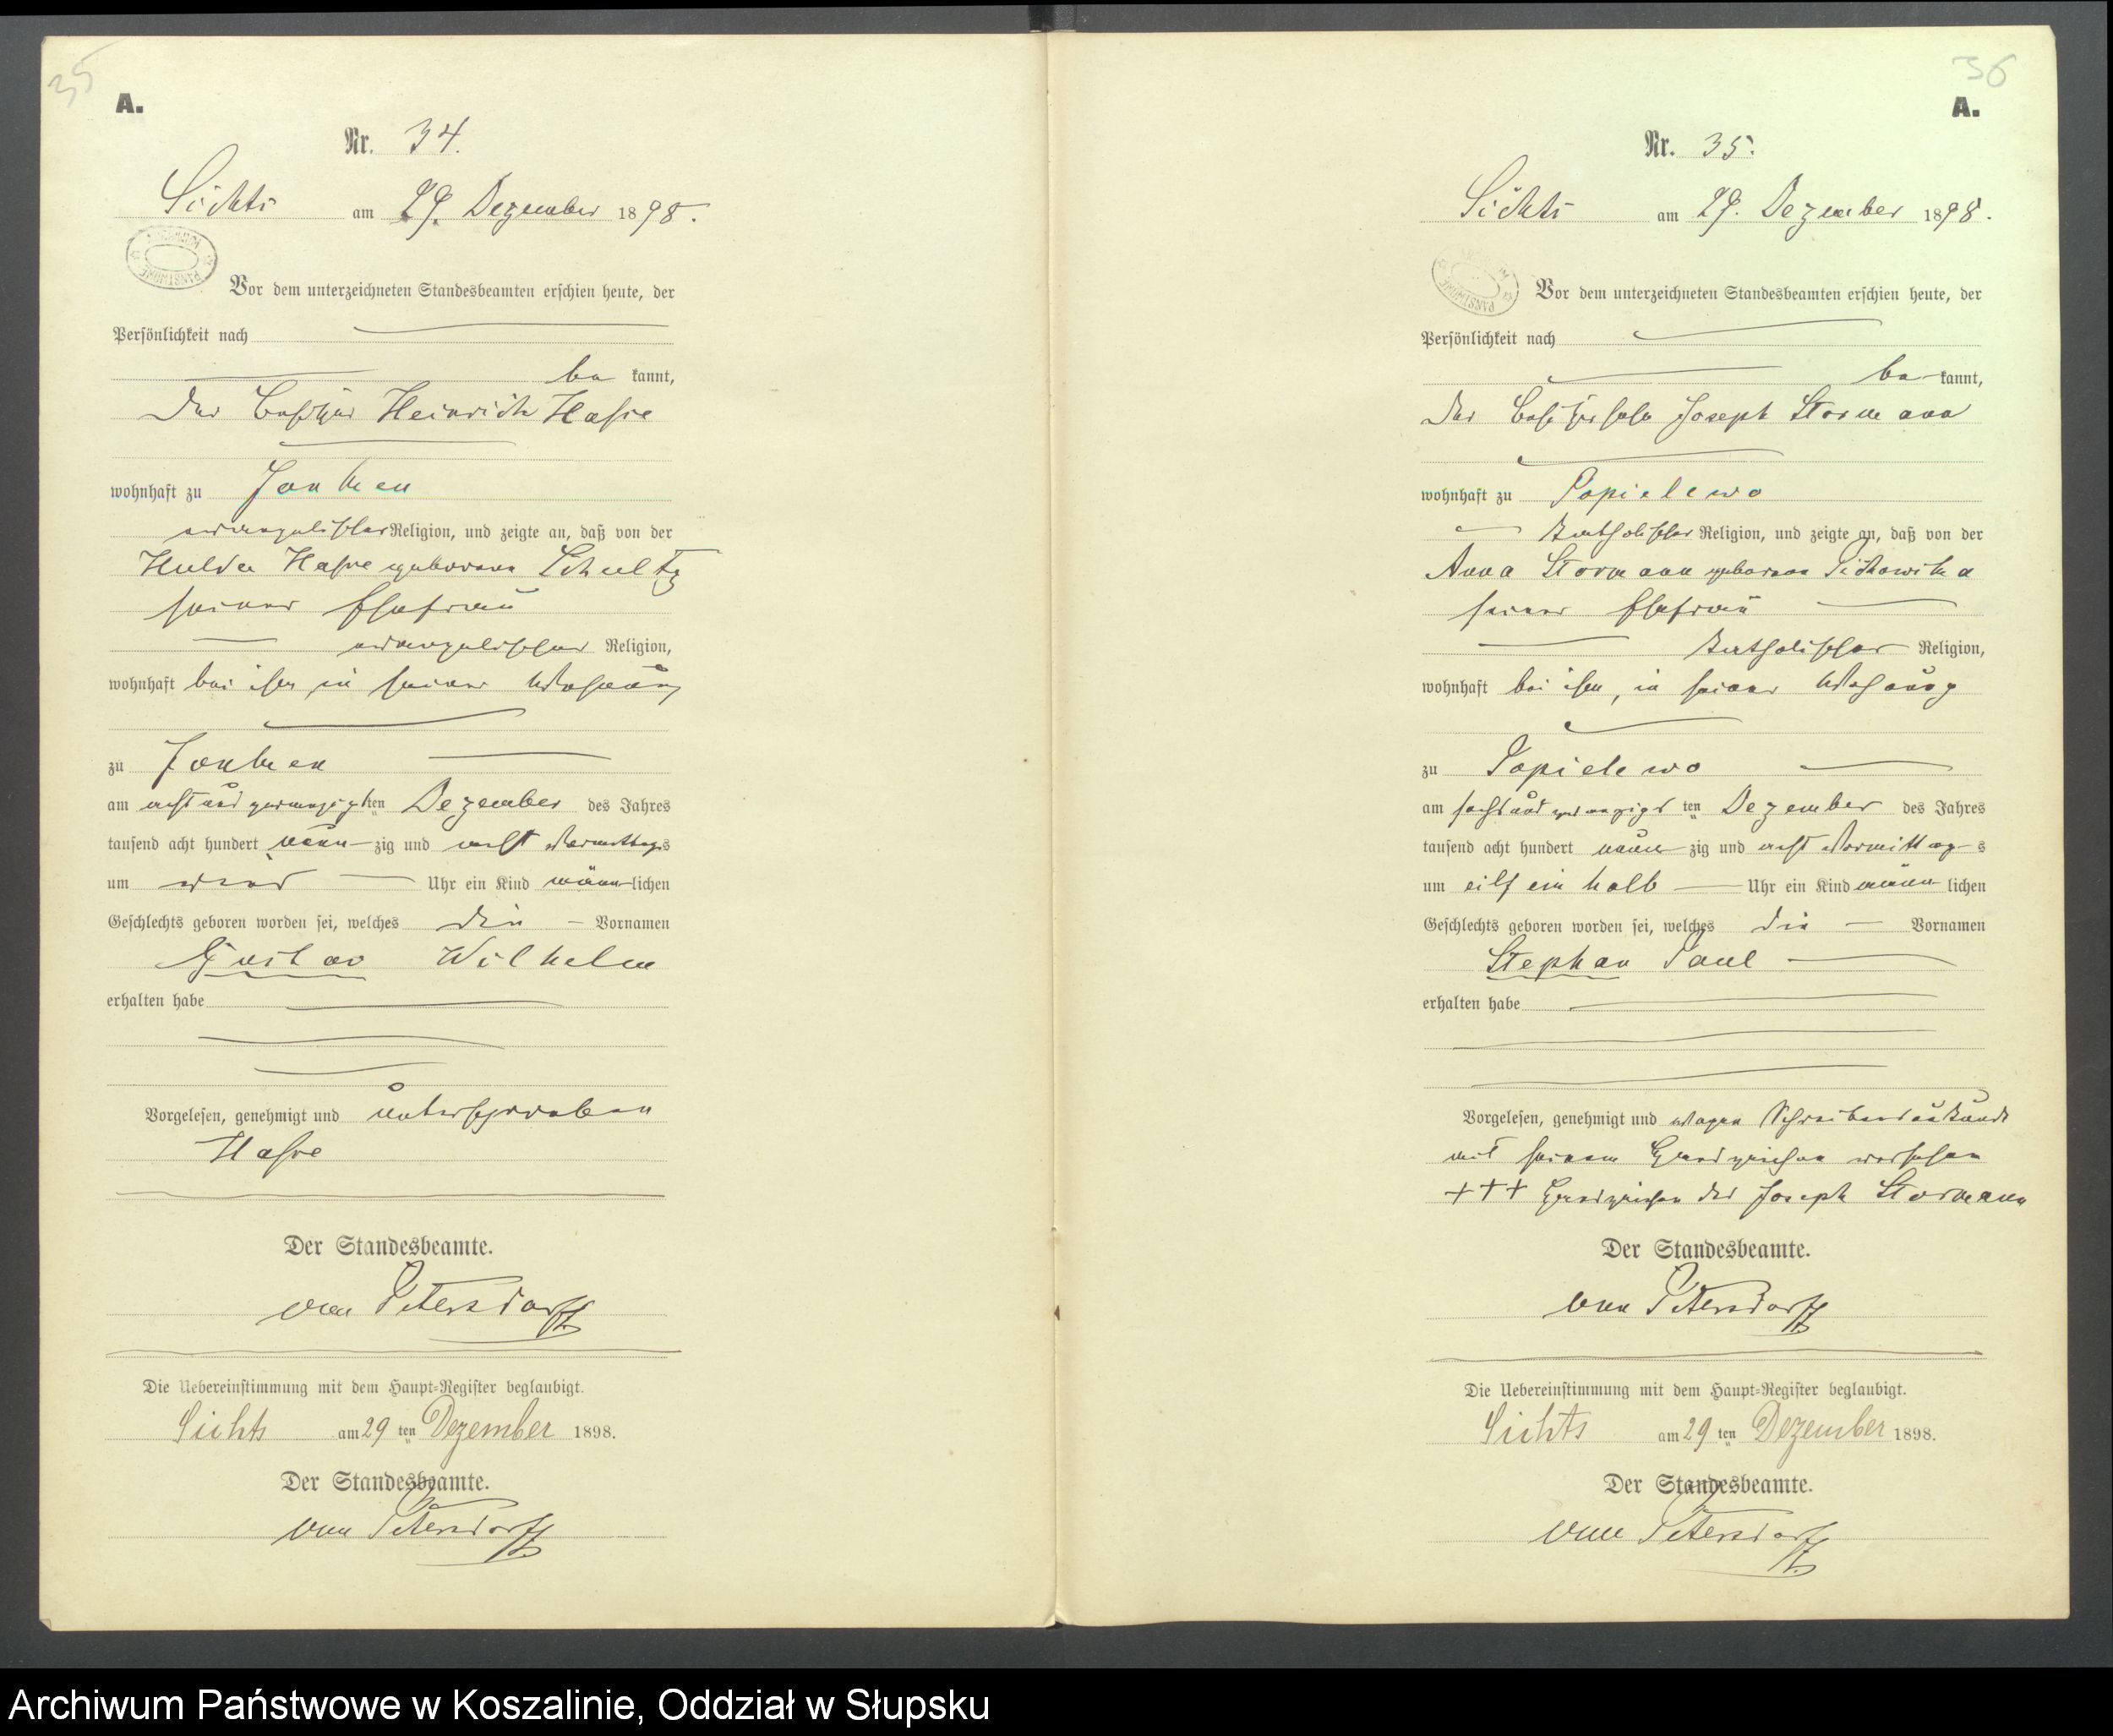 35
A.
Nr. 34.
Sichts am 29. Dezember 1898.
Vor dem unterzeichneten Standesbeamten erschien heute, der
Persönlichkeit nach
be kannt,
der Besitzer Heinrich Hasse
wohnhaft zu
evangelischer Religion, und zeigte an, daß von der
Hulda Hasse geborene Schultz
seiner Ehefrau
evangelischer Religion,
wohnhaft bei ihm in seiner Wohnung
zu
am acht und zwanzigsten Dezember des Jahres
tausend acht hundert neun zig und acht Vormittags
um Uhr ein Kind männlichen
Geschlechts geboren worden sei, welches die Vornamen
Gustav Wilhelm
erhalten habe
Vorgelesen, genehmigt und unterschrieben
Hasse
Der Standesbeamte.
von Petersdorff
Die Uebereinstimmung mit dem Haupt-Register beglaubigt.
Sichts am 29 ten Dezember 1898.
Der Standesbeamte.
von Petersdorff
36
A.
Nr. 35.
Sichts am 29. Dezember 1898.
Vor dem unterzeichneten Standesbeamten erschien heute, der
Persönlichkeit nach
be kannt,
der Joseph Stormann
wohnhaft zu Popielewo
katholischer Religion, und zeigte an, daß von der
Anna Stormann geborene
seiner Ehefrau
katholischer Religion,
wohnhaft bei ihm, in seiner Wohnung
zu Popielewo
am sechs und zwanzigs ten Dezember des Jahres
tausend acht hundert neun zig und acht Vormittag s
um eilf ein halb Uhr ein Kind männ lichen
Geschlechts geboren worden sei, welches die Vornamen
Stephan Paul
erhalten habe
Vorgelesen, genehmigt und wegen Schreibensunkunde
mit seinem Handzeichen versehen
+++ Handzeichen des Joseph Stormann
Der Standesbeamte.
von Petersdorff
Die Uebereinstimmung mit dem Haupt-Register beglaubigt.
Sichts am 29 ten Dezember 1898.
Der Standesbeamte.
von Petersdorff
Archiwum Państwowe w Koszalinie, Oddział w Słupsku